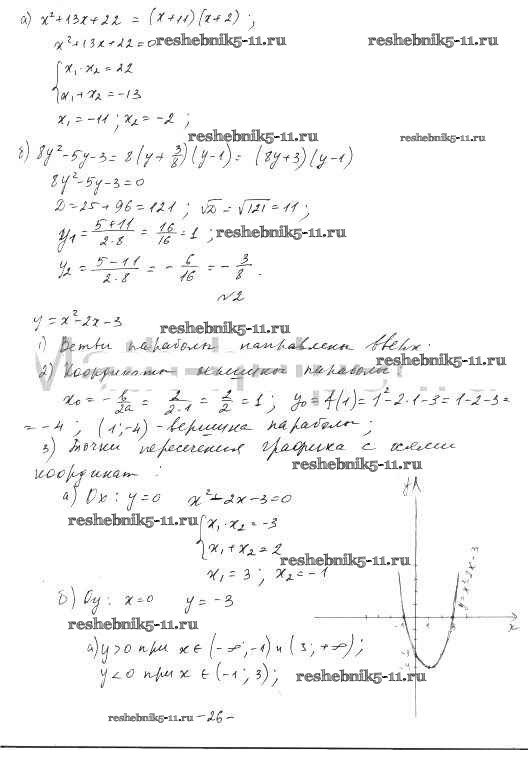 а) x²+13x+22 = (x+11)(x+2) ;
x²+13x+22=0 reshebnik5-11.ru reshebnik5-11.ru
{ x₁·x₂=22
x₁+x₂=-13
x₁=-11 ; x₂=-2 ;
reshebnik5-11.ru reshebnik5-11.ru
б) 8y²-5y-3= 8(y+3/8)(y-1)= (8y+3)(y-1)
8y²-5y-3=0
D=25+96=121 ; √D=√121=11 ;
y₁= (5+11)/(2·8) = 16/16 = 1 ; reshebnik5-11.ru
y₂= (5-11)/(2·8) = -6/16 = -3/8 .
№2
y=x²-2x-3 reshebnik5-11.ru
1) Ветви параболы направлены вверх.
reshebnik5-11.ru
2) Координаты вершины параболы
x₀=-b/2a= 2/(2·1) = 2/2 =1 ; y₀=f(1)=1²-2·1-3=1-2-3=
=-4 ; (1;-4)-вершина параболы ;
3) Точки пересечения графика с осями
координат : reshebnik5-11.ru
а) Ox: y=0 x²-2x-3=0
reshebnik5-11.ru { x₁·x₂=-3
x₁+x₂=2 reshebnik5-11.ru
x₁=3 ; x₂=-1
б) Oy: x=0 y=-3
а) y>0 при x∈(-∞;-1) и (3;+∞) ;
y<0 при x∈(-1;3) ; reshebnik5-11.ru
reshebnik5-11.ru -26-
y
y=x²-2x-3
-1 1 3 x